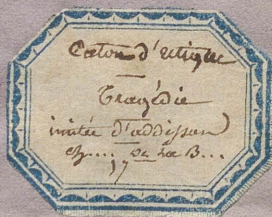 Caton d'Utique
Tragédie
imitée d'addisson
ch.... De La B...
17